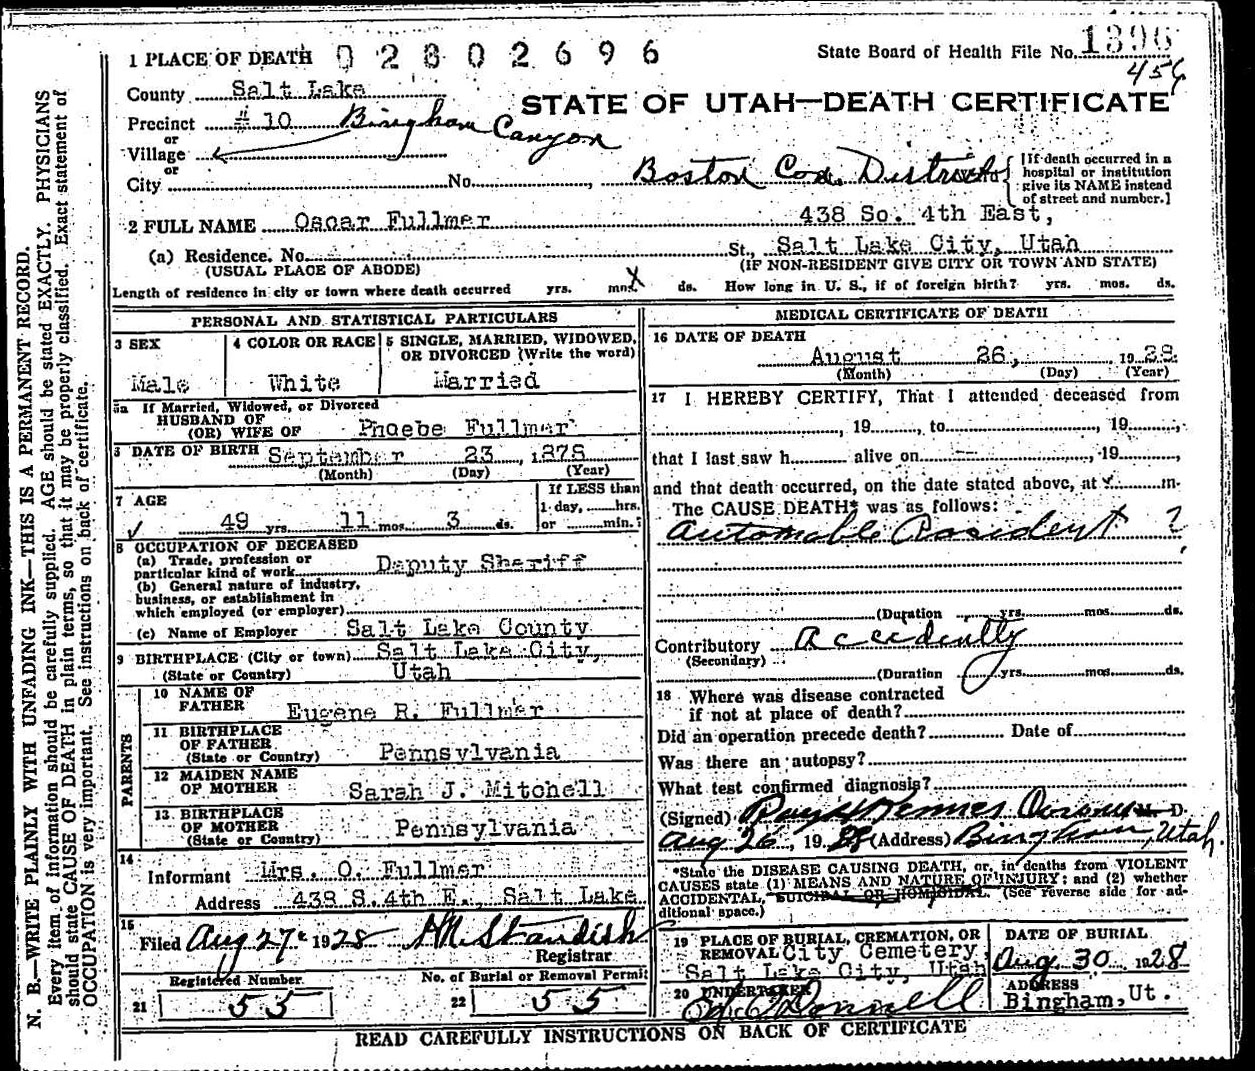 1 PLACE OF DEATH 02802696 State Board of Health File No. 1396
456
County Salt Lake
STATE OF UTAH—DEATH CERTIFICATE
Precinct # 10 Bingham Canyon
or
Village
or
City No. Boston Con. District
[If death occurred in a
hospital or institution
give its NAME instead
of street and number.]
2 FULL NAME Oscar Fullmer 438 So. 4th East,
(a) Residence. No. St., Salt Lake City, Utah
(USUAL PLACE OF ABODE) (IF NON-RESIDENT GIVE CITY OR TOWN AND STATE)
Length of residence in city or town where death occurred yrs. mos. X ds. How long in U. S., if of foreign birth? yrs. mos. ds.
PERSONAL AND STATISTICAL PARTICULARS
3 SEX
Male
4 COLOR OR RACE
White
5 SINGLE, MARRIED, WIDOWED,
OR DIVORCED (Write the word)
Married
5a If Married, Widowed, or Divorced
HUSBAND OF
(OR) WIFE OF Phoebe Fullmer
6 DATE OF BIRTH September 23, 1878
(Month) (Day) (Year)
7 AGE
49 yrs. 11 mos. 3 ds.
If LESS than
1 day, hrs.
or min.?
8 OCCUPATION OF DECEASED
(a) Trade, profession or
particular kind of work Deputy Sheriff
(b) General nature of industry,
business, or establishment in
which employed (or employer)
(c) Name of Employer Salt Lake County
9 BIRTHPLACE (City or town) Salt Lake City,
(State or Country) Utah
PARENTS
10 NAME OF
FATHER Eugene R. Fullmer
11 BIRTHPLACE
OF FATHER
(State or Country) Pennsylvania
12 MAIDEN NAME
OF MOTHER Sarah J. Mitchell
13 BIRTHPLACE
OF MOTHER
(State or Country) Pennsylvania
14
Informant Mrs. O. Fullmer
Address 438 S. 4th E., Salt Lake
15
Filed Aug 27 1928 H M Standish
Registrar
Registered Number
21 55
No. of Burial or Removal Permit
22 55
MEDICAL CERTIFICATE OF DEATH
16 DATE OF DEATH
August 26, 1928
(Month) (Day) (Year)
17 I HEREBY CERTIFY, That I attended deceased from
, 19, to, 19,
that I last saw h alive on, 19,
and that death occurred, on the date stated above, at m.
The CAUSE DEATH* was as follows:
Automobile Accident ?
(Duration yrs. mos. ds.
Contributory Accidently
(Secondary)
(Duration yrs. mos. ds.
18 Where was disease contracted
if not at place of death?
Did an operation precede death? Date of
Was there an autopsy?
What test confirmed diagnosis?
(Signed) M. D.
Aug 26, 1928 (Address) Bingham, Utah.
*State the DISEASE CAUSING DEATH, or, in deaths from VIOLENT
CAUSES state (1) MEANS AND NATURE OF INJURY; and (2) whether
ACCIDENTAL, SUICIDAL OR HOMICIDAL. (See reverse side for ad-
ditional space.)
19 PLACE OF BURIAL, CREMATION, OR
REMOVAL City Cemetery
Salt Lake City, Utah
DATE OF BURIAL
Aug. 30 1928
20 UNDERTAKER
O'Donnell
ADDRESS
Bingham, Ut.
READ CAREFULLY INSTRUCTIONS ON BACK OF CERTIFICATE
N. B.—WRITE PLAINLY WITH UNFADING INK—THIS IS A PERMANENT RECORD.
Every item of information should be carefully supplied. AGE should be stated EXACTLY. PHYSICIANS
should state CAUSE OF DEATH in plain terms, so that it may be properly classified. Exact statement of
OCCUPATION is very important. See instructions on back of certificate.